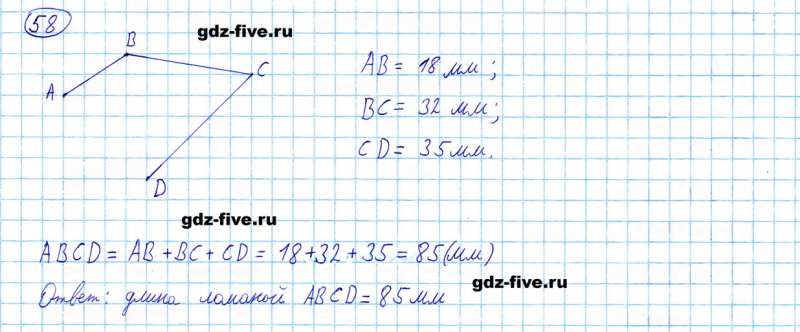 58
gdz-five.ru
B
C
A
D
AB = 18 мм;
BC = 32 мм;
CD = 35 мм.
gdz-five.ru
ABCD = AB + BC + CD = 18 + 32 + 35 = 85 (мм)
gdz-five.ru
Ответ: длина ломаной ABCD = 85 мм